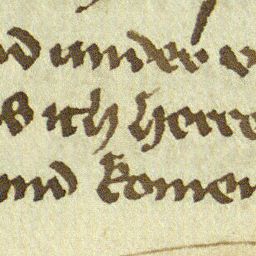 nd under v
s ich herre
und komen